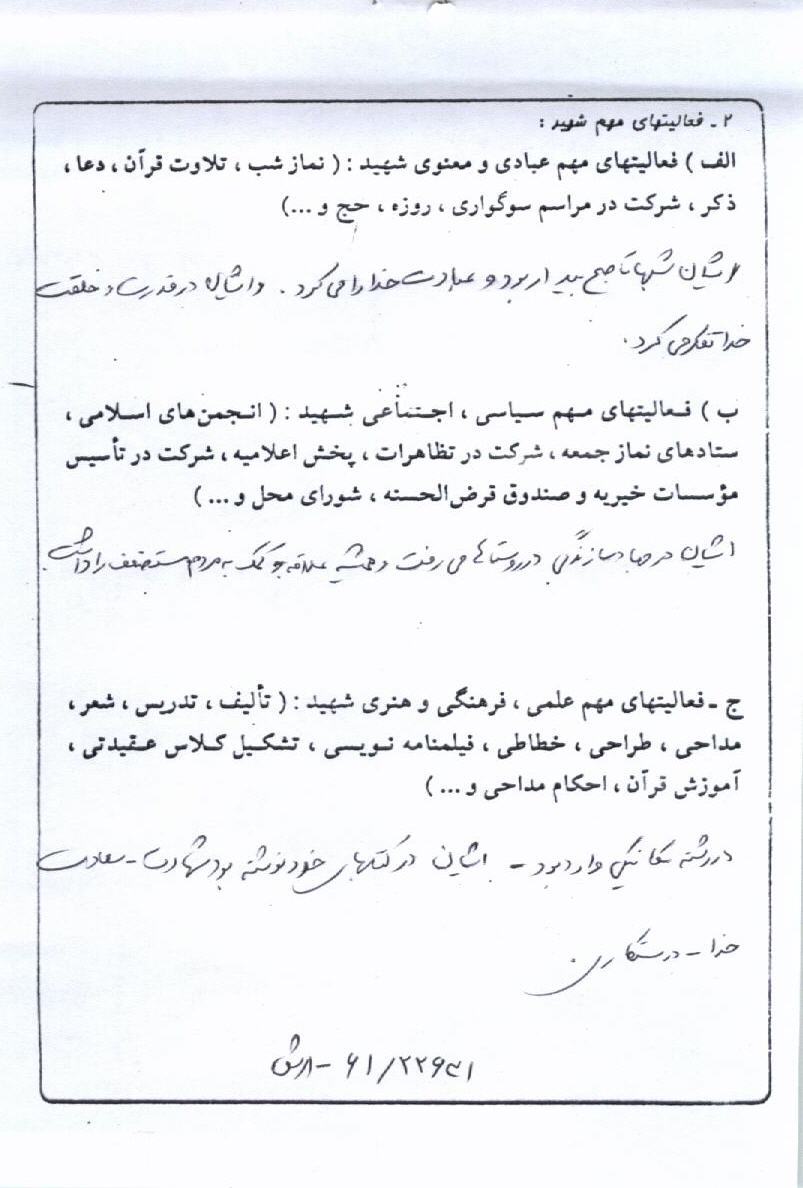 ۲ ـ فعالیتهای مهم شهید :
الف ) فعالیتهای مهم عبادی و معنوی شهید : ( نماز شب ، تلاوت قرآن ، دعا ،
ذکر ، شرکت در مراسم سوگواری ، روزه ، حج و ...)
ایشان شبها تا صبح بیدار بود و عبادت خدا را می کرد . و ایشان در قدرت و خلقت
خدا تفکر می کرد .
ب ) فعالیتهای مهم سیاسی ، اجتماعی شهید : ( انجمن‌های اسلامی ،
ستادهای نماز جمعه ، شرکت در تظاهرات ، پخش اعلامیه ، شرکت در تأسیس
مؤسسات خیریه و صندوق قرض‌الحسنه ، شورای محل و ... )
ایشان در جهاد سازندگی در روستاها می رفت و همیشه علاقه به کمک به مردم مستضعف را داشت .
ج ـ فعالیتهای مهم علمی ، فرهنگی و هنری شهید : ( تألیف ، تدریس ، شعر ،
مداحی ، طراحی ، خطاطی ، فیلمنامه نویسی ، تشکیل کلاس عقیدتی ،
آموزش قرآن ، احکام مداحی و ... )
در رشته مکانیکی وارد بود - ایشان در کتابهای خود نوشته بود شهادت - سعادت
خدا - درستکاری .
۶۱/۲۲۶